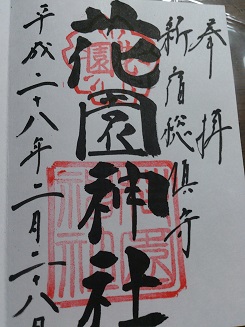 奉拝
新宿総鎮守
花園神社
平成二十八年二月二十八日